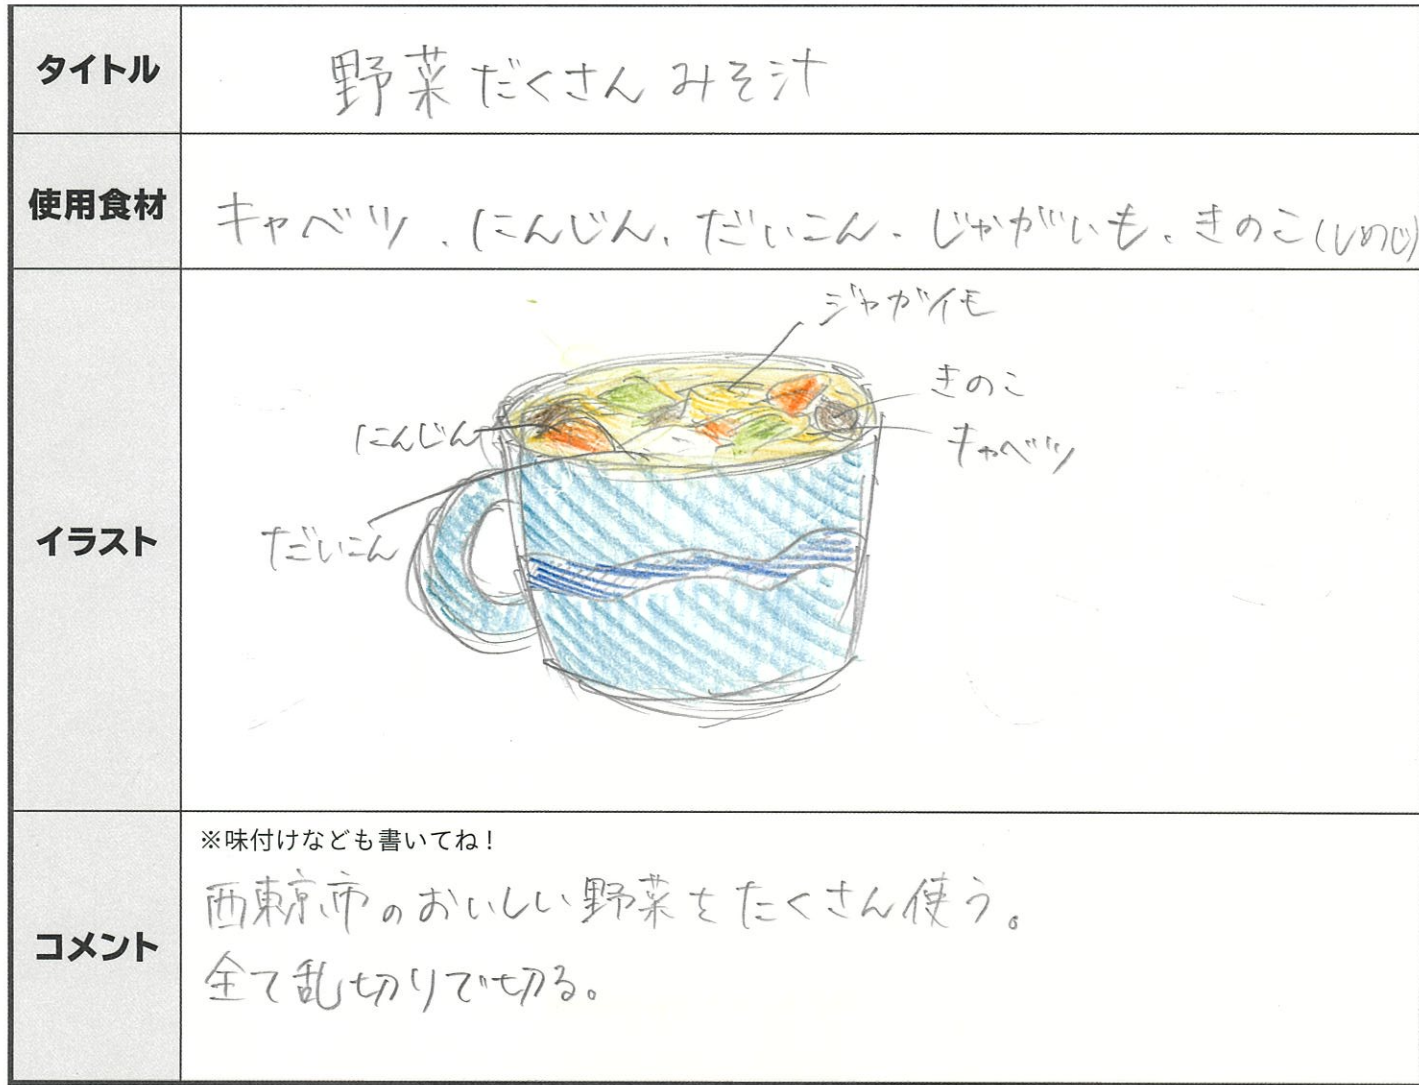 タイトル
野菜だくさんみそ汁
使用食材
キャベツ、にんじん、だいこん、じゃがいも、きのこ(しめじ)
イラスト
ジャガイモ
きのこ
キャベツ
にんじん
だいこん
コメント
※味付けなども書いてね!
西東京市のおいしい野菜をたくさん使う。
全て乱切りで切る。